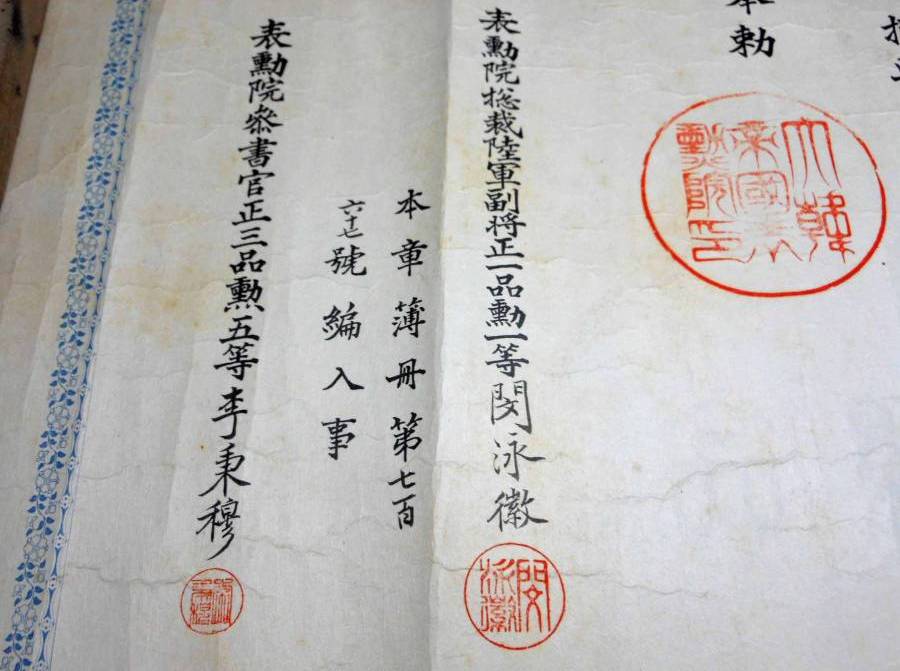 奉勅
大韓
帝國表
勳院印
表勳院総裁陸軍副将正一品勳一等閔泳徽
閔
泳徽
本章簿冊第七百
六十七號編入事
表勳院叅書官正三品勲五等李秉穆